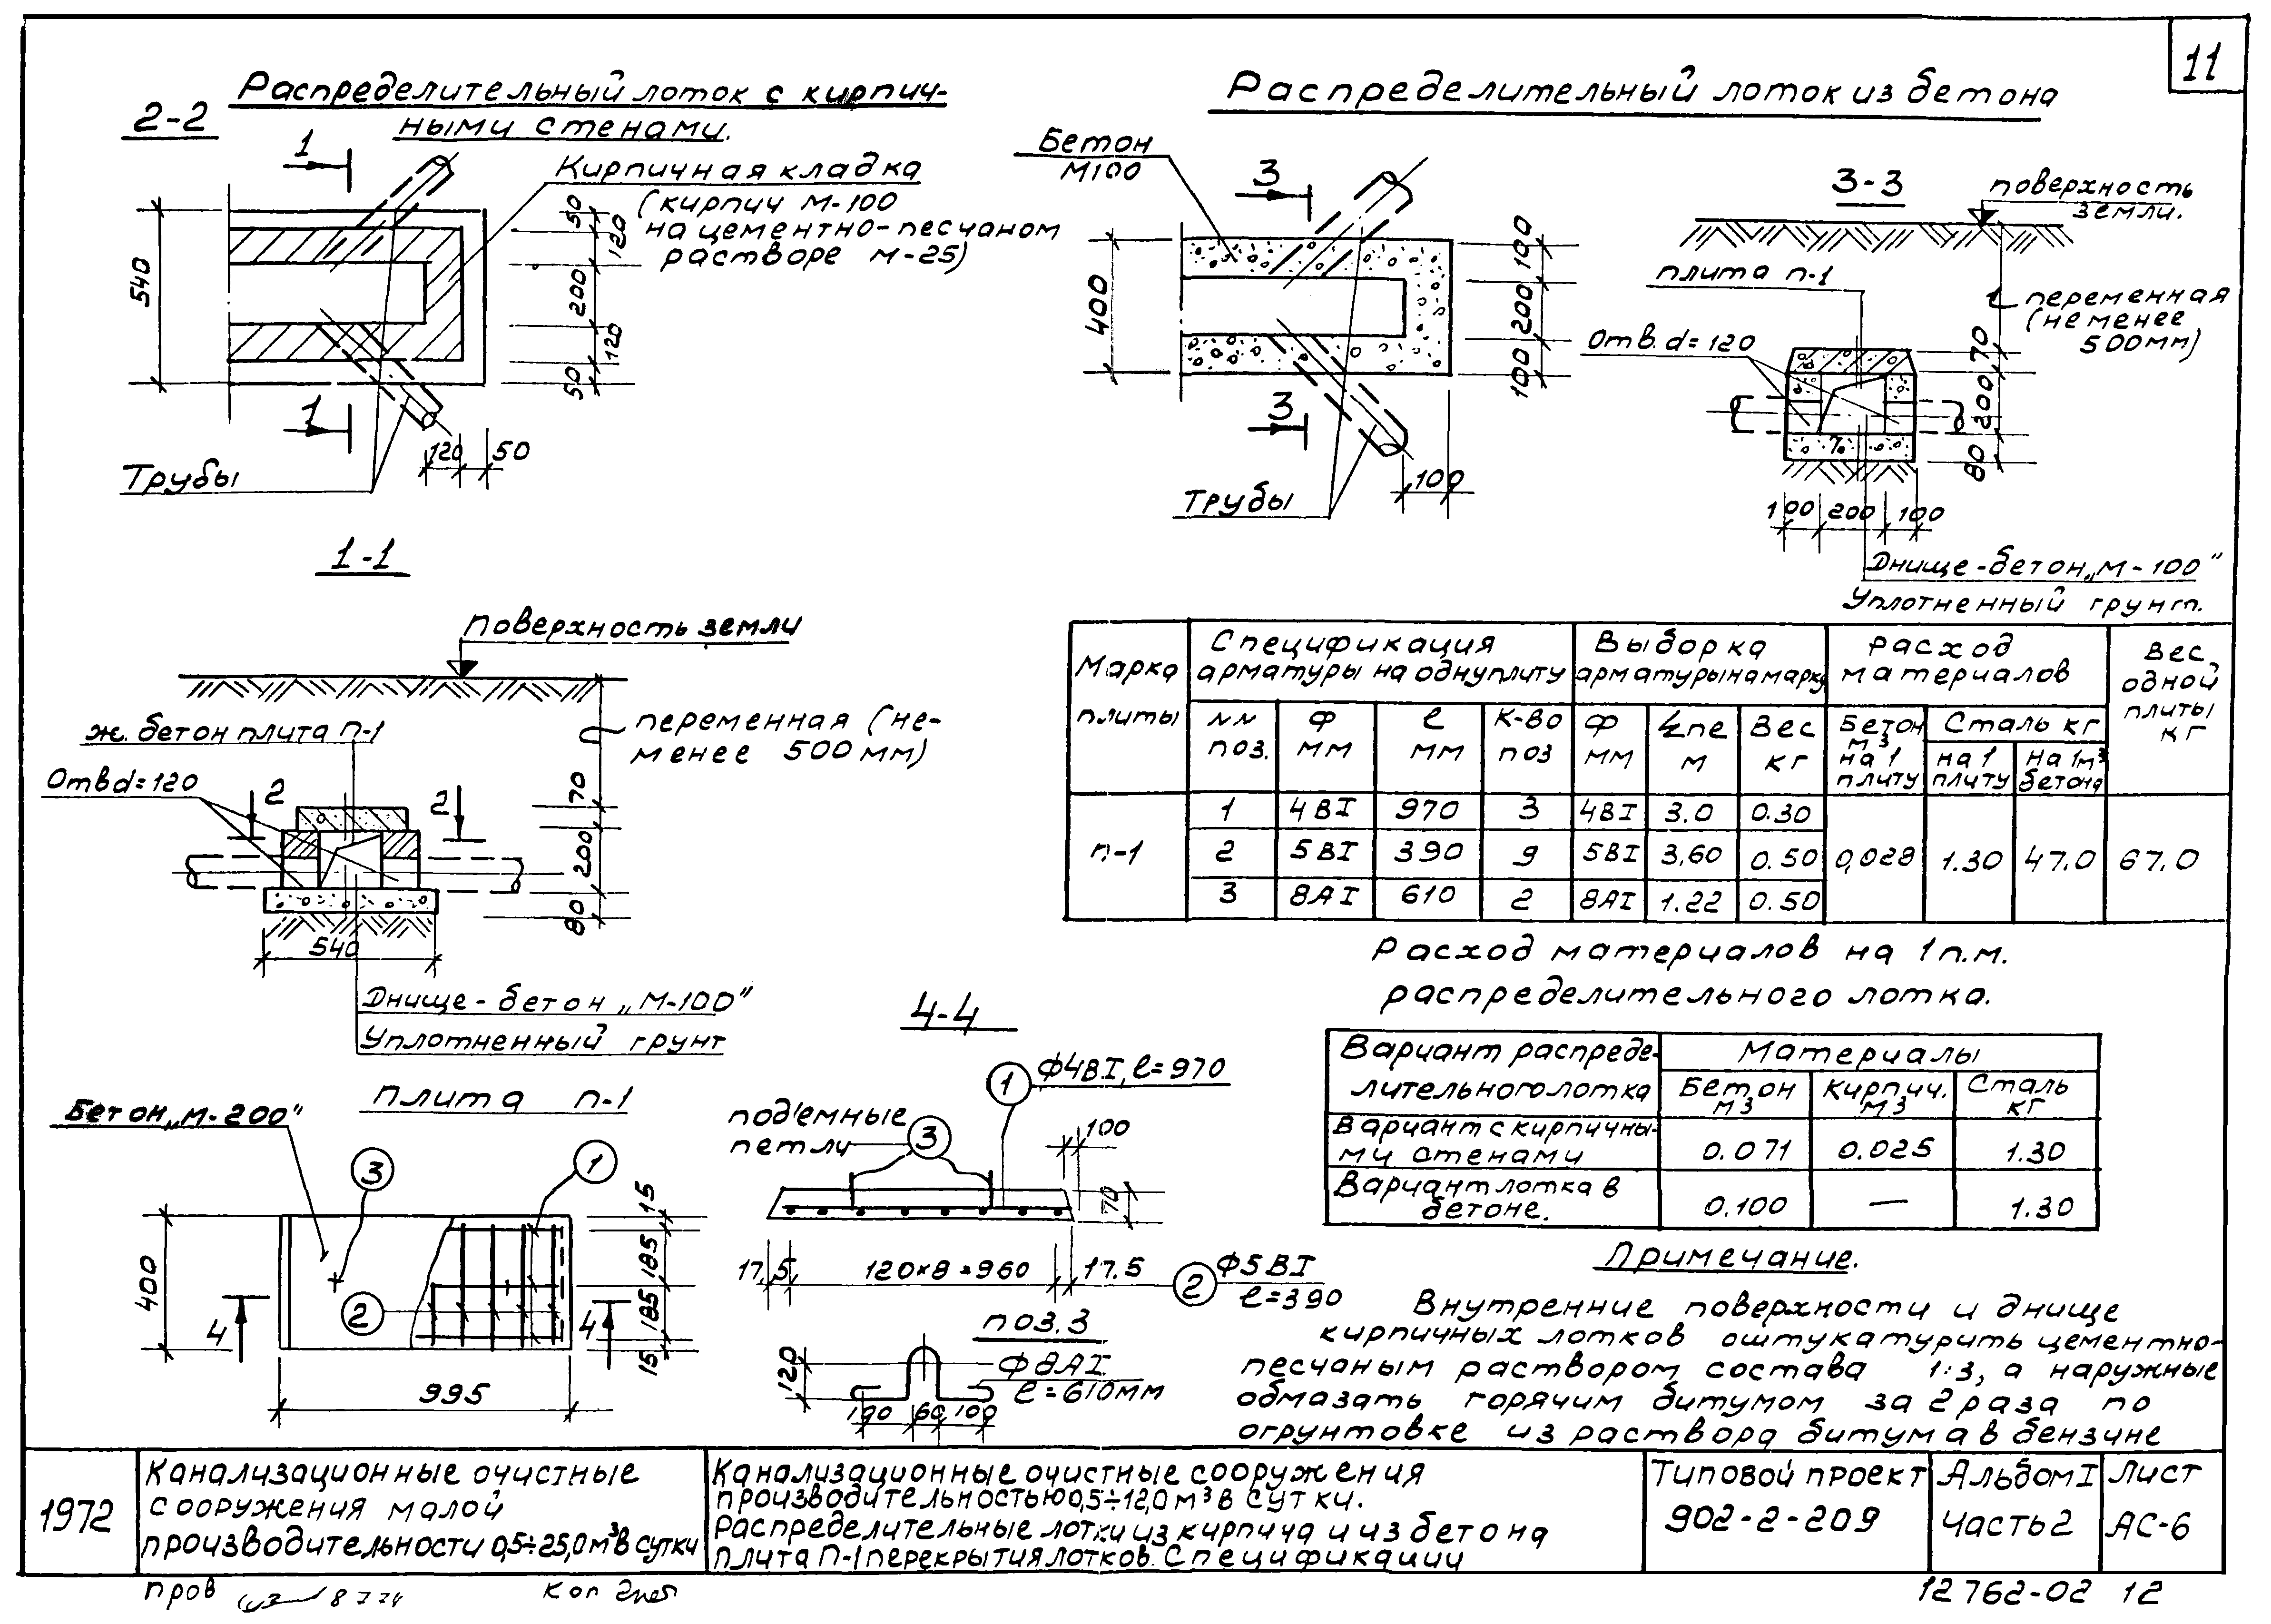 11
Распределительный лоток с кирпич-
ными стенами.
2-2
1
Кирпичная кладка
(кирпич М-100
на цементно-песчаном
растворе М-25)
540
50
120
200
120
50
1
120
50
Трубы
Распределительный лоток из бетона
Бетон
М100
3
400
100
200
100
3
100
Трубы
3-3
поверхность
земли.
плита п-1
переменная
(не менее
500мм)
Отв. d=120
70
200
80
100 200 100
Днище-бетон „М-100"
Уплотненный грунт.
1-1
Поверхность земли
переменная (не-
менее 500 мм)
ж. бетон плита п-1
Отв d=120
2
2
70
200
80
540
Днище-бетон „М-100"
Уплотненный грунт
Марка
плиты
Спецификация
арматуры на одну плиту
Выборка
арматуры на марку
расход
материалов
Вес
одной
плиты
кг
NN
поз.
Ф
мм
ℓ
мм
К-во
поз
Ф
мм
Σпе
м
Вес
кг
Бетон
м³
на 1
плиту
Сталь кг
на 1
плиту
На 1м³
бетона
п-1
1 4ВI 970 3 4ВI 3.0 0.30
2 5ВI 390 9 5ВI 3,60 0.50 0,028 1.30 47.0 67.0
3 8АI 610 2 8АI 1.22 0.50
Расход материалов на 1п.м.
распределительного лотка.
Вариант распреде-
лительного лотка
Материалы
Бетон
м3
Кирпич.
м3
Сталь
кг
Вариант с кирпичны-
ми стенами
0.071 0.025 1.30
Вариант лотка в
бетоне.
0.100 — 1.30
плита п-1
Бетон „М-200"
3
1
2
400
4
4
15
185
185
15
995
4-4
1
Ф4ВI, ℓ=970
подъемные
петли
3
100
70
17.5 120×8=960 17.5
2
Ф5ВI
ℓ=390
поз. 3
Ф8АI
ℓ=610мм
120
100 60 100
Примечание.
Внутренние поверхности и днище
кирпичных лотков оштукатурить цементно-
песчаным раствором состава 1:3, а наружные
обмазать горячим битумом за 2 раза по
огрунтовке из раствора битума в бензине
1972
Канализационные очистные
сооружения малой
производительности 0,5÷25,0м³в сутки
Канализационные очистные сооружения
производительностью 0,5÷12,0 м³ в сутки.
Распределительные лотки из кирпича и из бетона
плита П-1 перекрытия лотков. Спецификации
Типовой проект
902-2-209
Альбом I
Часть 2
Лист
АС-6
пров
коп
12762-02 12